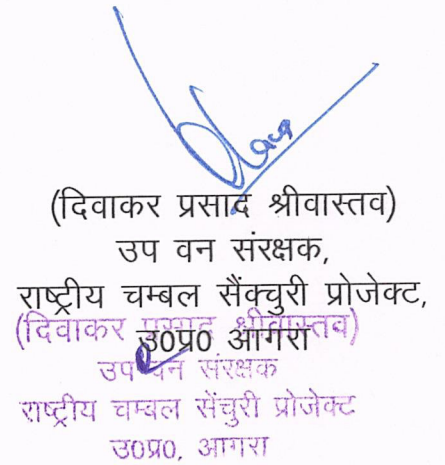 (दिवाकर प्रसाद श्रीवास्तव)
उप वन संरक्षक,
राष्ट्रीय चम्बल सैंक्चुरी प्रोजेक्ट,
उ0प्र0 आगरा
(दिवाकर प्रसाद श्रीवास्तव)
उप वन संरक्षक
राष्ट्रीय चम्बल सेंचुरी प्रोजेक्ट
उ0प्र0, आगरा